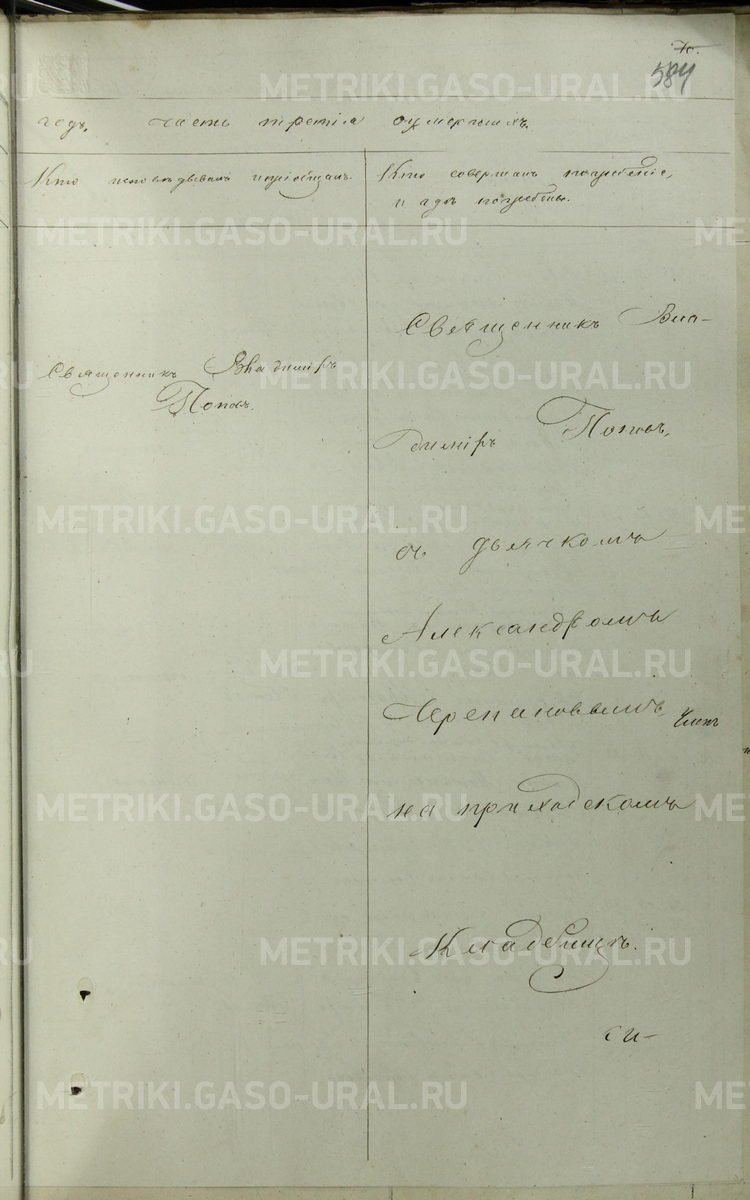 584
годъ, часть третія оумершихъ.
Кто исповѣдывалъ и пріобщалъ.
Кто совершалъ погребеніе,
и гдѣ погребены.
Священникъ Владиміръ
Поповъ.
Священникъ Вла-
диміръ Поповъ,
съ дьячкомъ
Александромъ
Черепановымъ
на приходскомъ
Кладбищѣ.
си-
METRIKI.GASO-URAL.RU